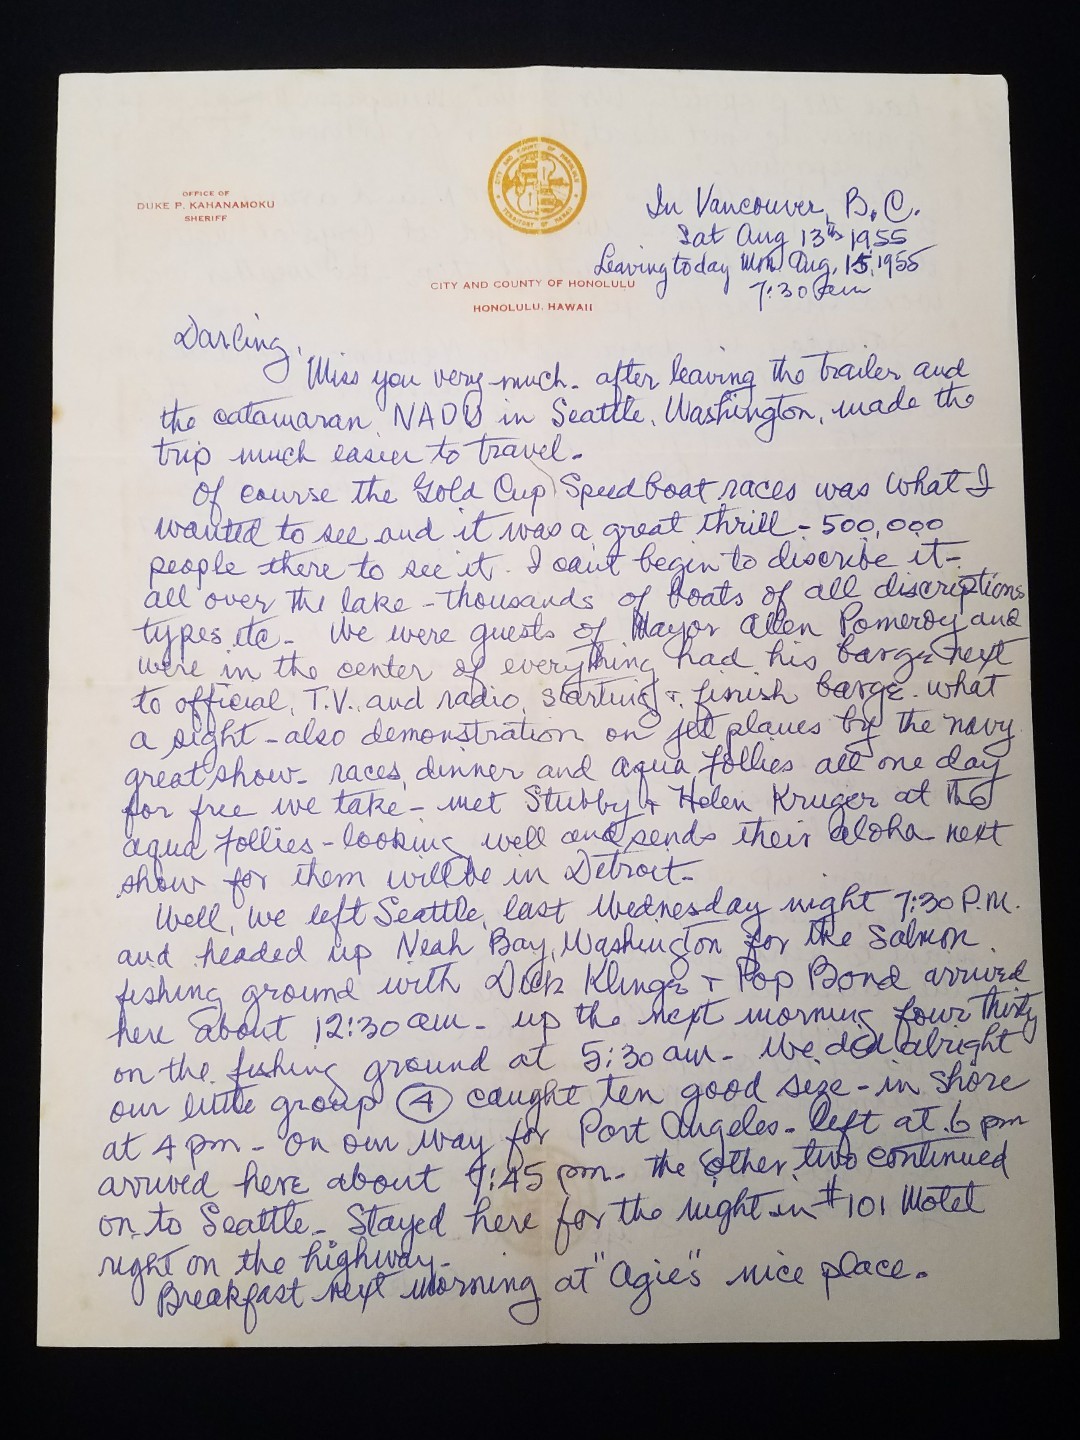 OFFICE OF
DUKE P. KAHANAMOKU
SHERIFF
CITY AND COUNTY OF HONOLULU
TERRITORY OF HAWAII
CITY AND COUNTY OF HONOLULU
HONOLULU, HAWAII
In Vancouver, B.C.
Sat Aug 13th 1955
Leaving today Mon. Aug. 15, 1955
7:30 am
Darling,
Miss you very much - after leaving the trailer and
the catamaran, in Seattle, Washington, made the
trip much easier to travel -
Of course the Gold Cup Speed Boat races was what I
wanted to see and it was a great thrill - 500,000
people there to see it. I can't begin to discribe it -
all over the lake - thousands of boats of all discriptions
types etc - We were guests of Mayor Allen Pomeroy and
were in the center of everything had his barge next
to official, T.V. and radio, starting + finish barge. what
a sight - also demonstration on jet planes by the navy
great show - races, dinner and aqua follies all one day
for free we take - met Stubby + Helen Kruger at the
aqua follies - looking well and sends their aloha next
show for them will be in Detroit -
Well, we left Seattle, last Wednesday night 7:30 P.M.
and headed up Neah Bay, Washington for the salmon
fishing ground with Dick + Pop Bond arrived
here about 12:30 am - up the next morning four thirty
on the fishing ground at 5:30 am - We did alright
our little group (4) caught ten good size - in shore
at 4 pm - on our way for Port Angeles - left at 6 pm
arrived here about :45 pm - the other two continued
on to Seattle - Stayed here for the night in #101 Motel
right on the highway -
Breakfast next morning at "Agie's" nice place.